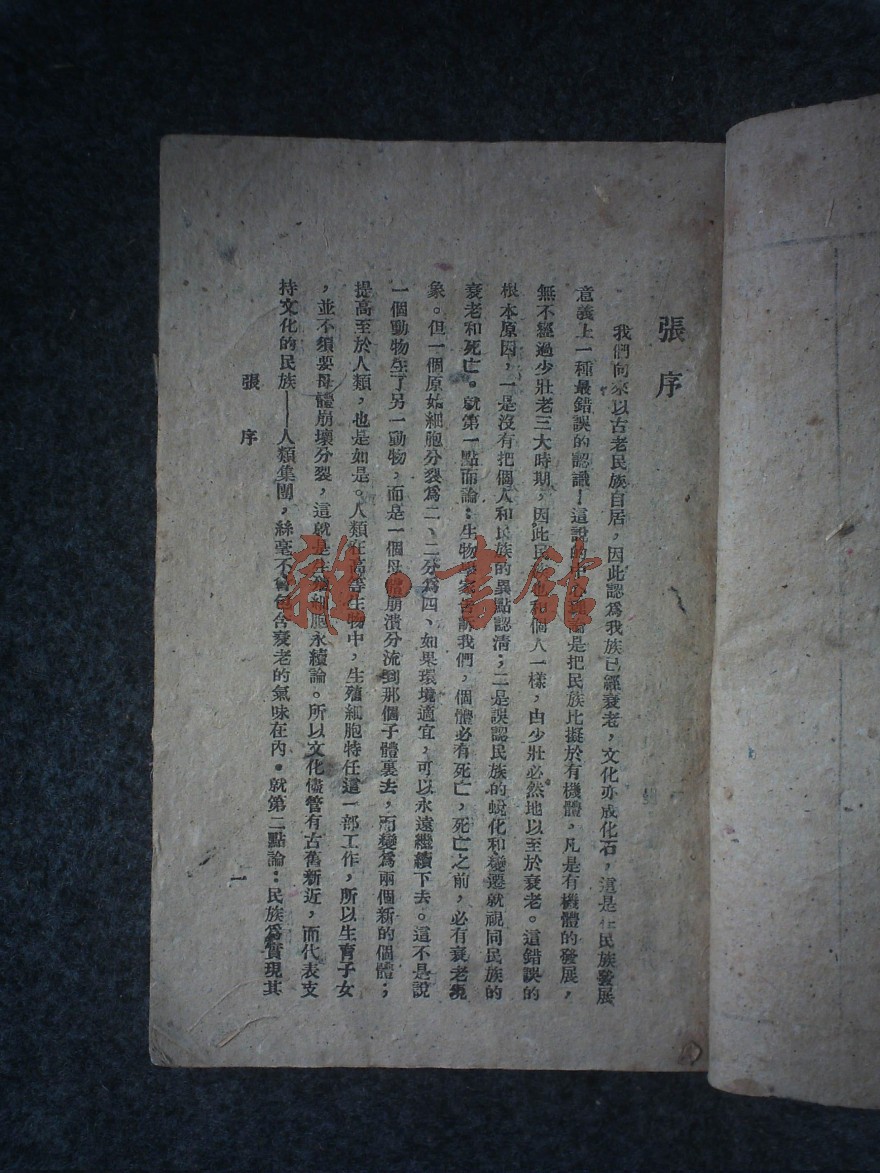 張序
我們向來以古老民族自居，因此認爲我族已經衰老，文化亦成化石，這是在民族發展
意義上一種最錯誤的認識！這說的中心理論是把民族比擬於有機體，凡是有機體的發展，
無不經過少壯老三大時期，因此民族也和個人一樣，由少壯必然地以至於衰老。這錯誤的
根本原因，一是沒有把個人和民族的異點認清；二是誤認民族的蛻化和變遷就視同民族的
衰老和死亡。就第一點而論：生物學家告訴我們，個體必有死亡，死亡之前，必有衰老現
象。但一個原始細胞分裂爲二、二分爲四、如果環境適宜，可以永遠繼續下去。這不是說
一個動物生了另一動物，而是一個母體崩潰分流到那個子體裏去，而變爲兩個新的個體；
提高至於人類，也是如是。人類在高等生物中，生殖細胞特任這一部工作，所以生育子女
，並不須要母體崩壞分裂，這就是生殖細胞永續論。所以文化儘管有古舊新近，而代表支
持文化的民族——人類集團，絲毫不會包含衰老的氣味在內。就第二點論：民族爲實現其
張序
一
雜·書館